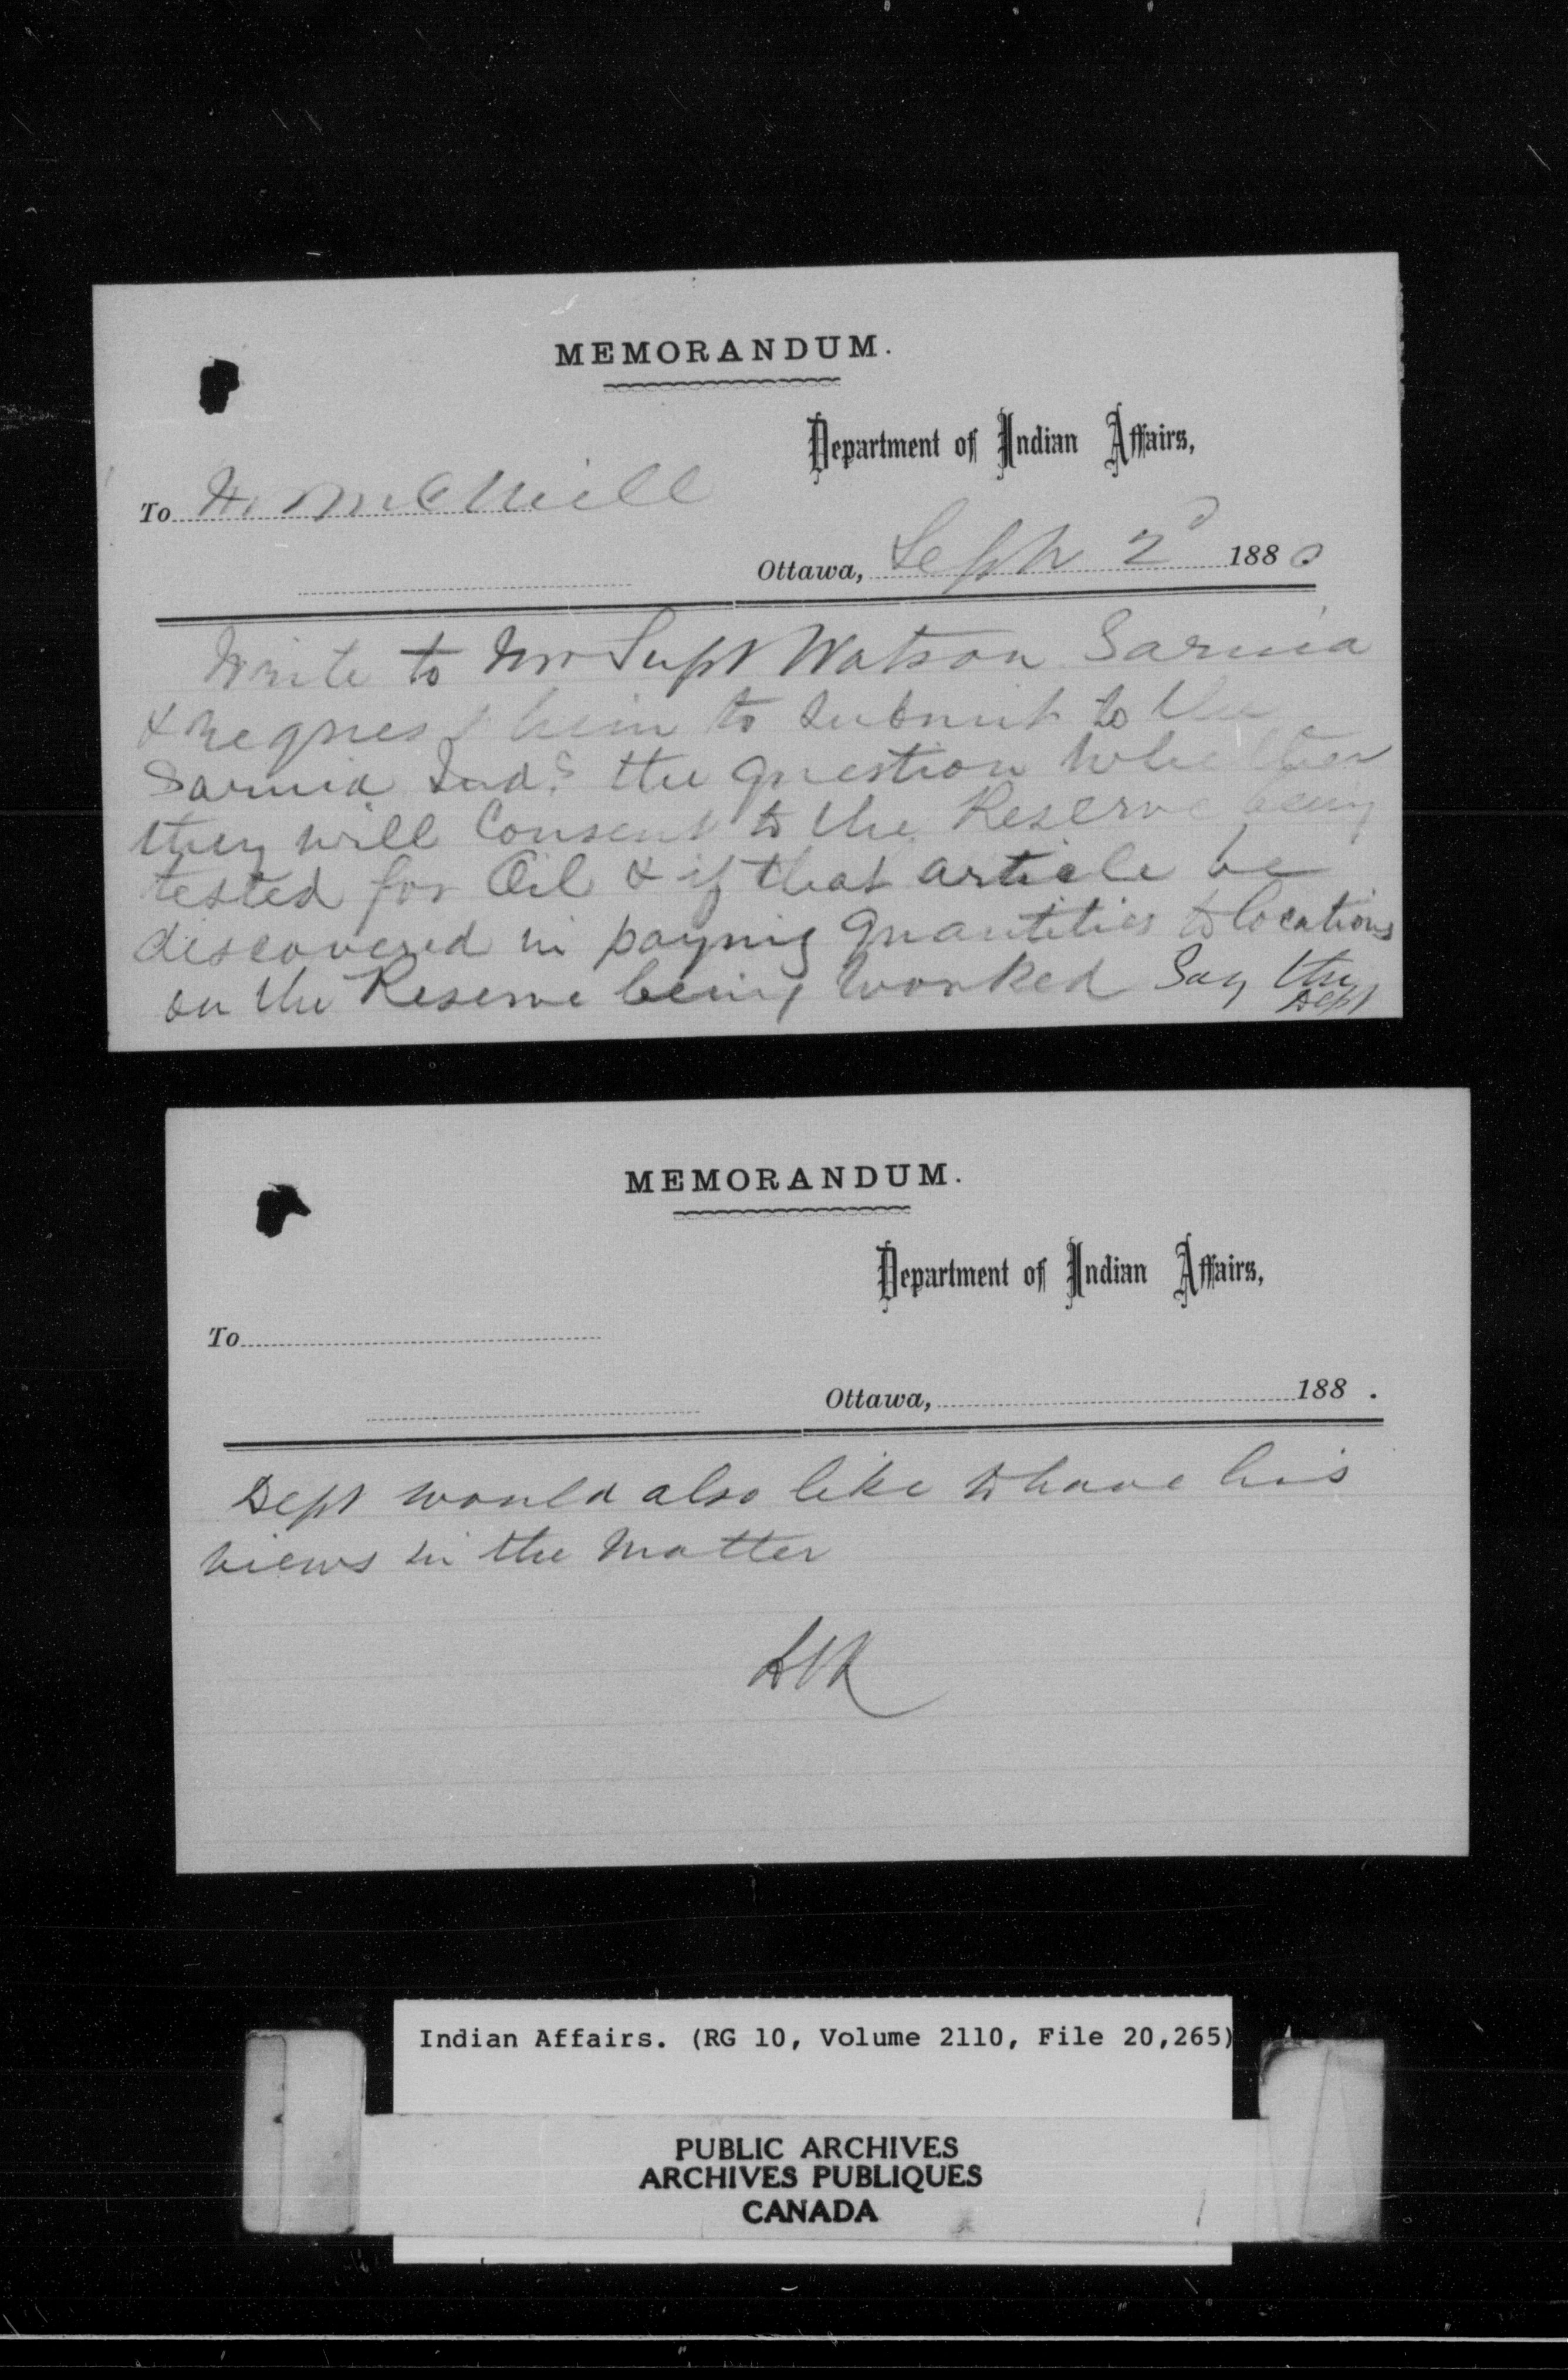 MEMORANDUM.
Department of Indian Affairs,
To McNeill
Ottawa, Sept 2d 1880
Write to Mr Supt Watson Sarnia
& request him to submit to the
Sarnia Inds the question whether
they will Consent to the Reserve being
tested for Oil & if that article be
discovered in paying quantities to locations
on the Reserve being worked Say the
Dept
MEMORANDUM.
Department of Indian Affairs,
To
Ottawa, 188 .
Dept would also like to have his
views in the Matter
Indian Affairs. (RG 10, Volume 2110, File 20,265)
PUBLIC ARCHIVES
ARCHIVES PUBLIQUES
CANADA